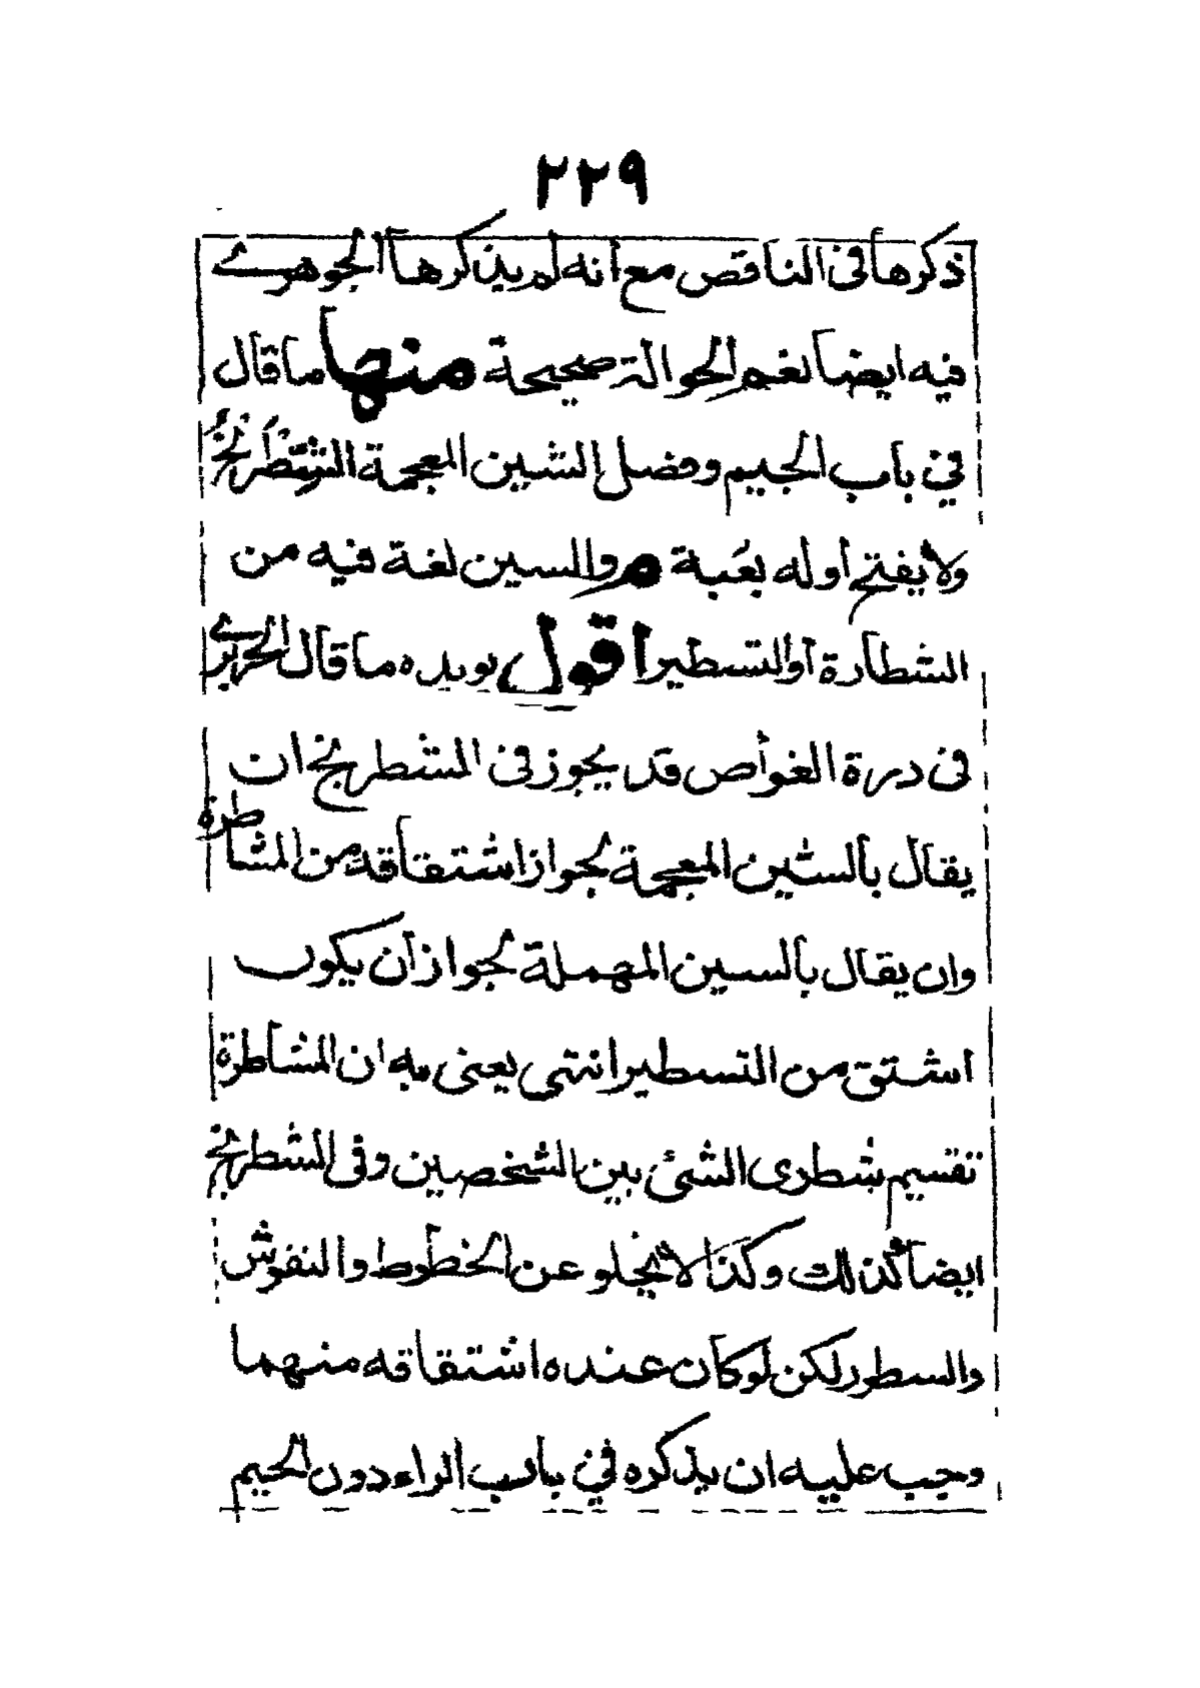 ٢٢٩
ذكرها فى الناقص مع أنه لم يذكرها الجوهرے
فيه ايضا نعم الحوالة صحيحة منها ما قال
في باب الجيم وفصل الشين المعجمة الشِّطْرَنْجُ
ولا يفتح أوله لعَبة م والسين لغة فيه من
الشطارة أو التسطير اقول يويده ما قال الحريرے
فى درة الغواص قد يجوز فى الشطرنج ان
يقال بالشين المعجمة لجواز اشتقاقه من المشاطرة
وان يقال بالسين المهملة لجواز أن يكون
اشتق من التسطير انتهى يعنى به ان المشاطرة
تقسيم شطرى الشئ بين الشخصين وفى الشطرنج
ايضا كذلك وكذا لا يخلو عن الخطوط والنقوش
والسطور لكن لو كان عنده اشتقاقه منهما
وجب عليه ان يذكره في باب الراء دون الجيم